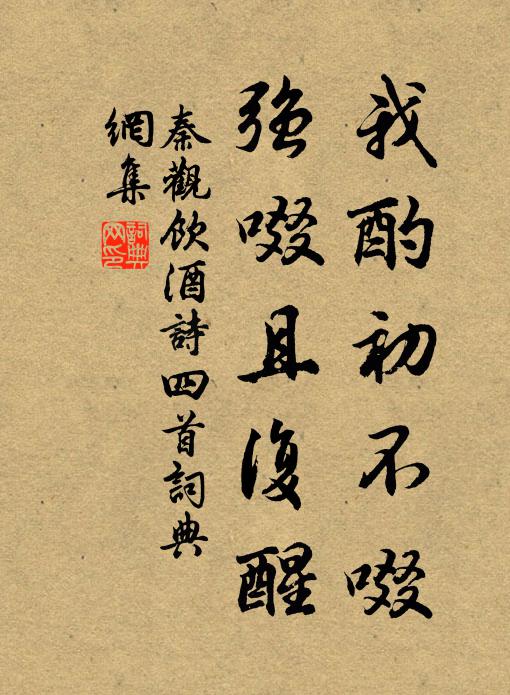 我酌初不啜
強啜且復醒
秦觀飲酒詩四首詞典
網集
詞典
網印